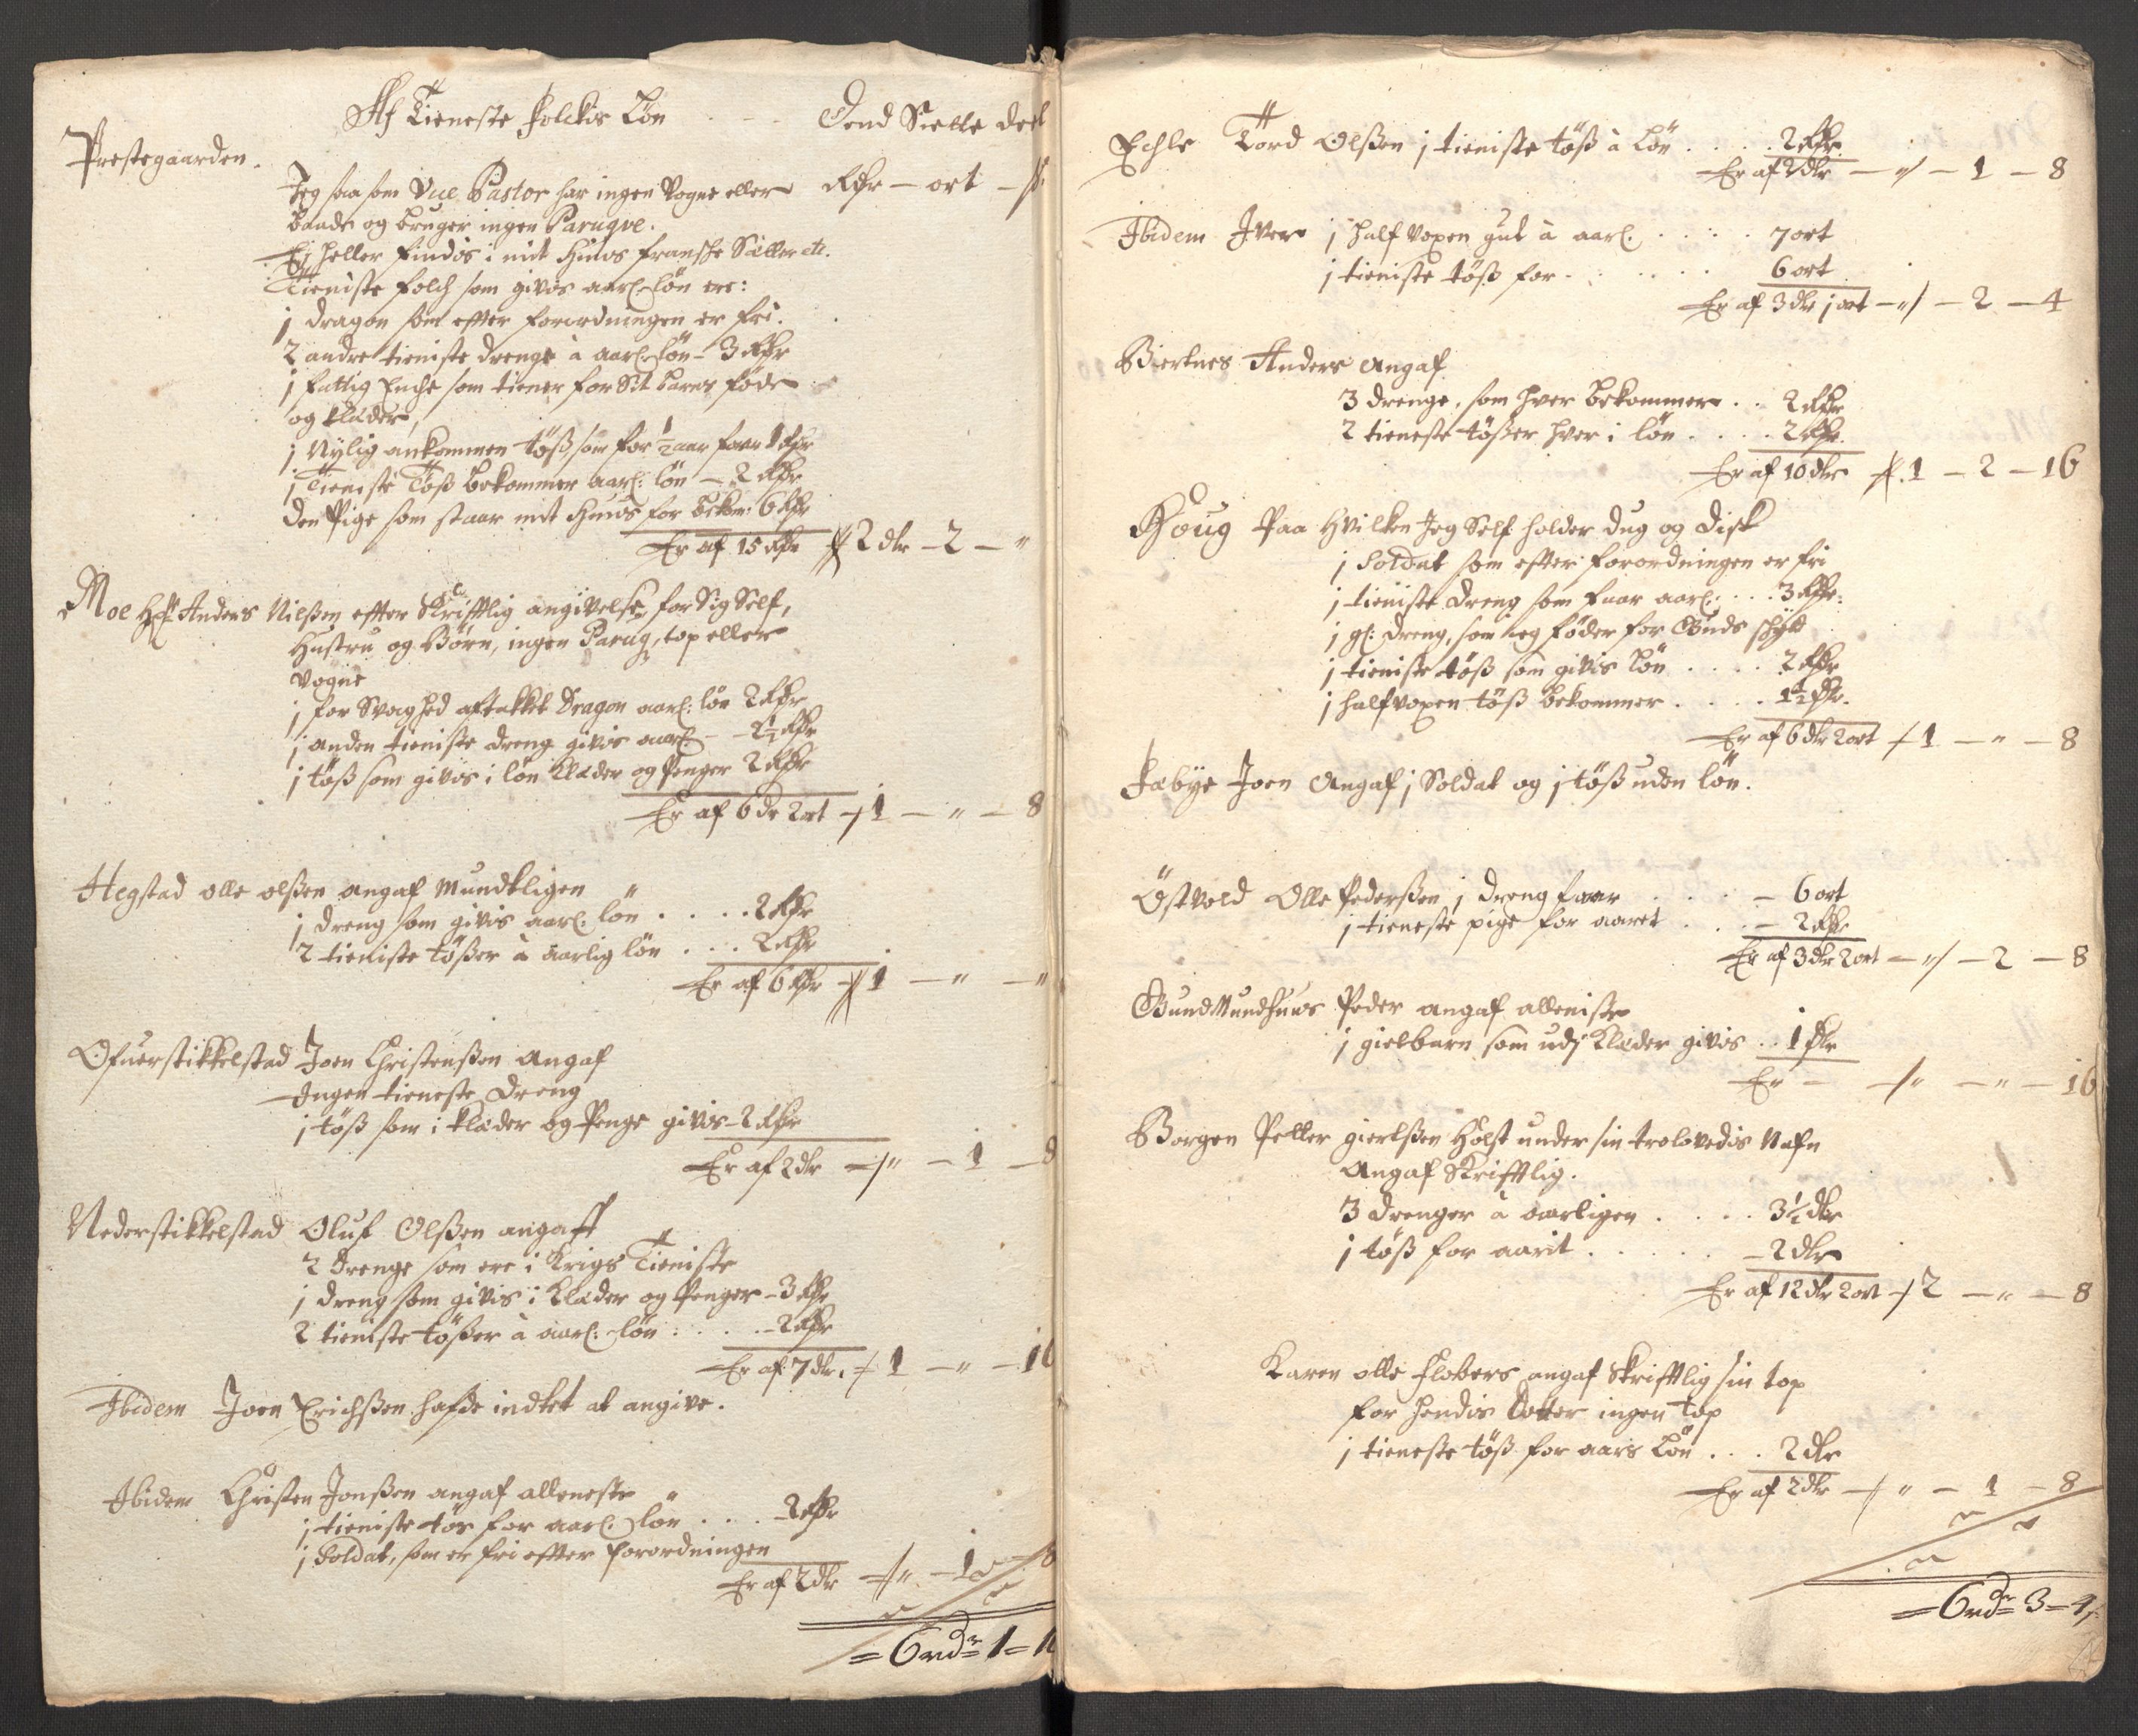 Af Tieneste folckis Løn - - - Dend Siette deel
Prestegaarden.
Jeg saa som Vice Pastor har ingen Vogne eller Rdr - ort - s.
baade og bruger ingen Paruqve.
Ej heller findis i mit Huus franske Sætter etc.
Tieniste folch som givis aarl. løn ere:
j dragon som efter forordningen er fri.
2 andre tieniste drenge à aarl. løn - 3 Rdr
j fattig Enche som tiener for Sit barns føde
og klæder,
j Nylig ankommen töß, som for ½ aar faar 1 Rdr
j Tieniste Töß bekommer aarl: løn - 2 Rdr
den Pige som staar mit Huus for bekom: 6 Rdr
Er af 15 Rdr 2 dlr - 2 - "
Moe Hr Anders Nilßen efter Skrifftlig angivelse, for Sig Self,
Hustru og Børn, ingen Paruq, top eller
vogne
j for Svaghed aftakket Dragon aarl: løn 2 Rdr
j anden tieniste dreng givis aarl. - - 2½ Rdr
j töß som givis i løn Klæder og Penger 2 Rdr
Er af 6 dr 2 ort 1 - " - 8
Hegstad olle olßen angaf Mundtligen
j dreng som givis aarl. løn . . . . 2 Rdr
2 tieniste tößer à aarlig løn . . . 2 Rdr
Er af 6 Rdr 1 - " - "
Ofuerstikkelstad Joen Christenßen angaf
Ingen tieneste dreng
j töß som i klæder og Penge givis - 2 Rdr
Er af 2 dlr " - 1 - 8
Nederstikkelstad Oluf Olßen angaff
2 drenge som ere i Krigs Tieniste
j dreng som givis i Klæder og Penger - 3 Rdr
2 tieniste tößer à aarl: løn : . . . - 2 Rdr
Er af 7 dlr. 1 - " - 16
Ibidem Joen Erichßen hafde indtet at angive.
Ibidem Christen Jonßen angaf alleneste
j tieniste tös for aarl. løn . . . - 2 Rdr
j Soldat, som er fri efter forordningen
Er af 2 dlr " - 1 - 8
= 6 rdr 1 = 16
Echle Tord Olßen j tieniste töß à løn . . . . 2 Rdr
Er af 2 dlr - " - 1 - 8
Ibidem Iver j half voxen gut à aarl. . . . . 7 ort
j tieniste töß for . . . . . 6 ort
Er af 3 dlr j ort - " - 2 - 4
Biertnes Anders angaf
3 drenge, som hver bekommer . . 2 Rdr
2 tieneste tößer hver i løn . . . . 2 Rdr.
Er af 10 dlr 1 - 2 - 16
Houg Paa Hvilken Jeg Self holder dug og disk
j Soldat som efter forordningen er fri
j tieniste dreng som faar aarl: . . . 3 Rdr.
j gl: dreng, som ieg føder for Guds skyld
j tieniste töß som givis løn . . . . 2 Rdr
j halfvoxen töß bekommer . . . . 1½ Rdr.
Er af 6 dlr 2 ort 1 - " - 8
Jæbye Joen angaf j Soldat og j töß uden løn.
Östvold Olle Pederßen j dreng faar . . . . - 6 ort
j tieneste pige for aaret . . . - 2 Rdr
Er af 3 dlr 2 ort - " - 2 - 8
Gundmundhuus Peder angaf alleniste
j gietbarn som udj Klæder givis . . 1 Rdr
Er - " - " - 16
Borgen Petter giertßen Holst under sin trolovedis Nafn
Angaf Skrifftlig.
3 drenger à aarligen . . . . 3½ dlr
j töß for aarit . . . . . - 2 dlr
Er af 12 dlr 2 ort 2 - " - 8
Karen olle Flobers angaf Skrifftlig sin top
for hendis Dotter ingen top
j tieneste töß for aars Løn . . . 2 dlr
Er af 2 dlr " - 1 - 8
= 6 rdr 3 - 4 s.